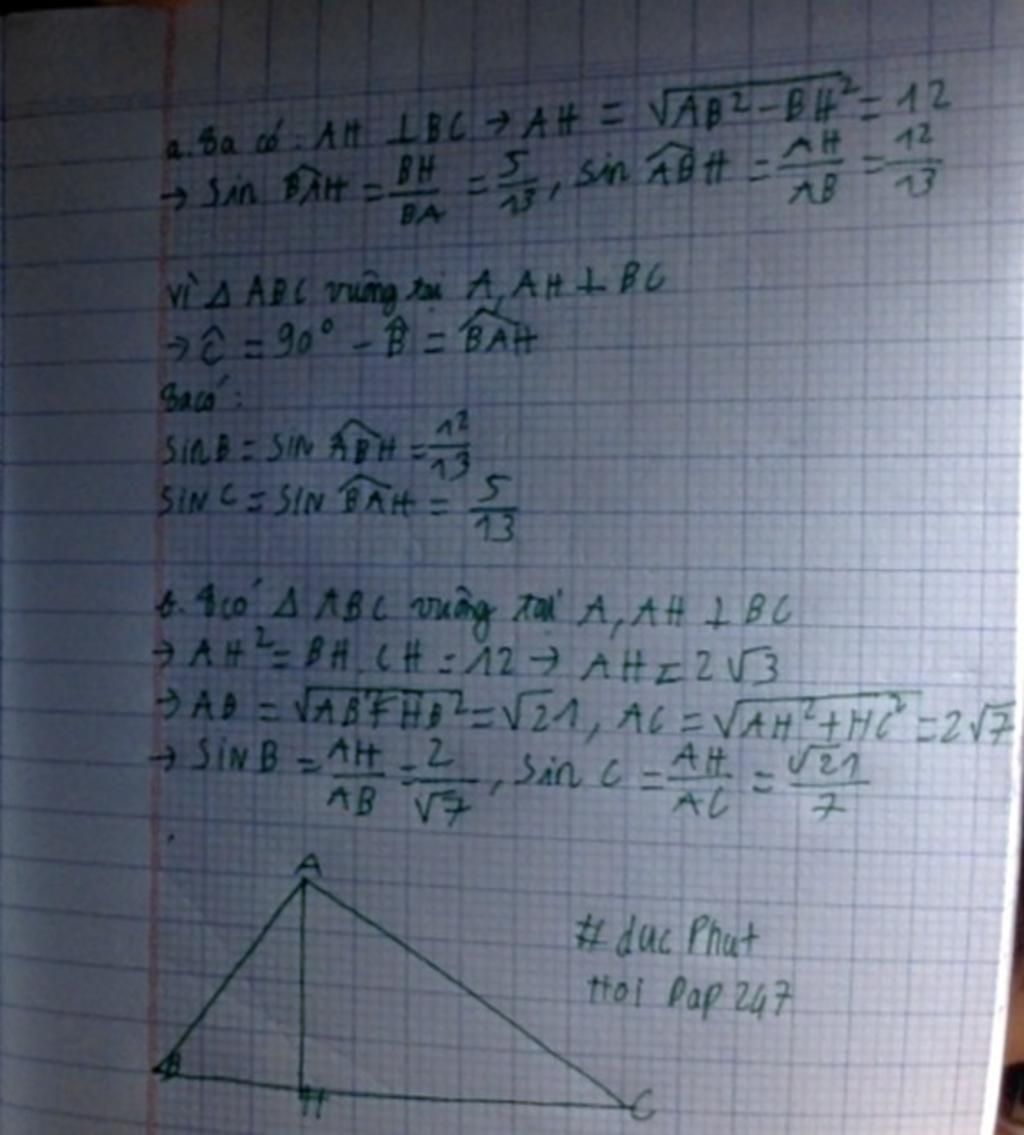 a. Ta có: AH ⊥ BC → AH = √(AB² - BH²) = 12
→ sin BAH = BH/BA = 5/13, sin ABH = AH/AB = 12/13
vì Δ ABC vuông tại A, AH ⊥ BC
→ Ĉ = 90° - B̂ = BAH
Ta có:
sin B = sin ABH = 12/13
sin C = sin BAH = 5/13
b. Tcó Δ ABC vuông tại A, AH ⊥ BC
→ AH² = BH.CH = 12 → AH = 2√3
→ AB = √(AB²+HB²) = √21, AC = √(AH²+HC²) = 2√7
→ sin B = AH/AB = 2/√7, sin C = AH/AC = √21/7
A
# duc Phat
Hoi Dap 247
B
H
C